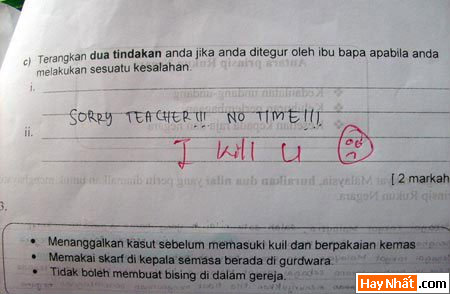 c) Terangkan dua tindakan anda jika anda ditegur oleh ibu bapa apabila anda
melakukan sesuatu kesalahan.
i.
SORRY TEACHER!!! NO TIME!!!
ii.
I kill u
[ 2 markah
3.
• Menanggalkan kasut sebelum memasuki kuil dan berpakaian kemas
• Memakai skarf di kepala semasa berada di gurdwara.
• Tidak boleh membuat bising di dalam gereja.
HayNhất.com